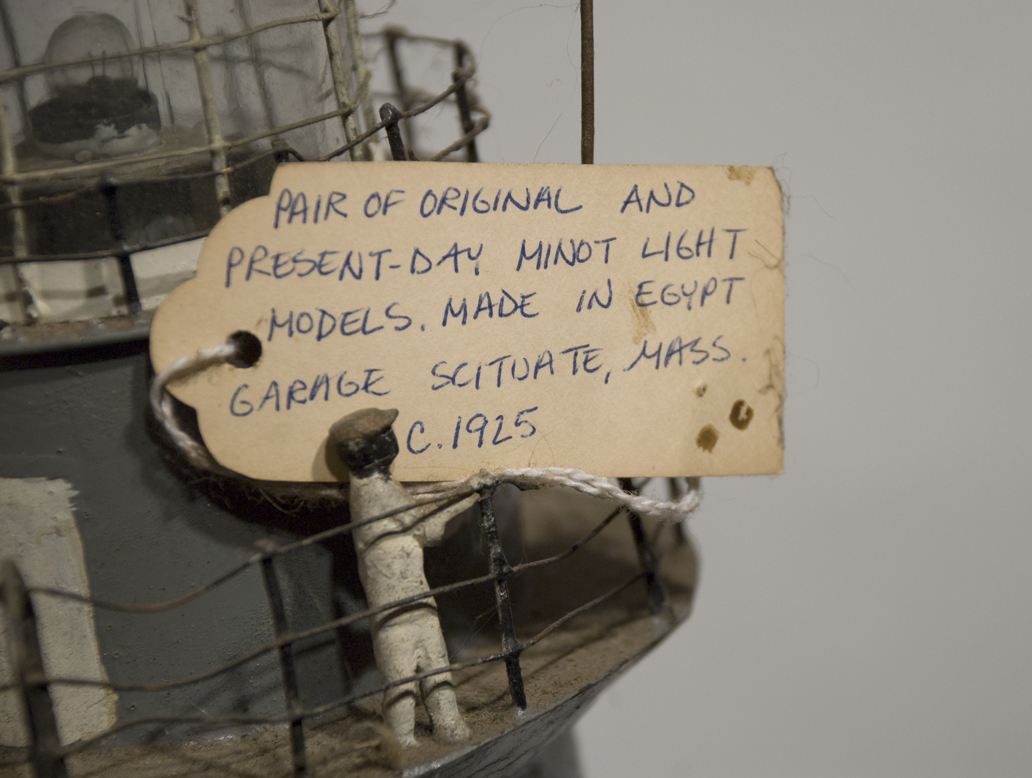 PAIR OF ORIGINAL AND
PRESENT-DAY MINOT LIGHT
MODELS. MADE IN EGYPT
GARAGE SCITUATE, MASS.
C.1925